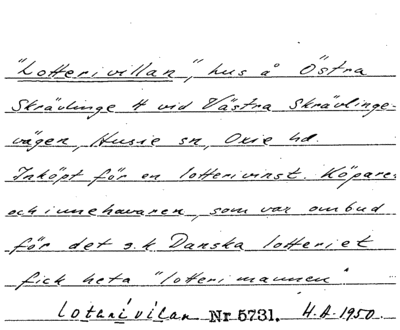 "Lotterivillan", hus å Östra
Skrävlinge 4 vid Västra Skrävlinge-
vägen, Husie sn, Oxie hd.
Inköpt för en lotterivinst. Köpare-
och innehavaren, som var ombud
för det s.k. Danska lotteriet
fick heta "lotterimannen"
lotarivilan Nr 5731. H.A. 1950.